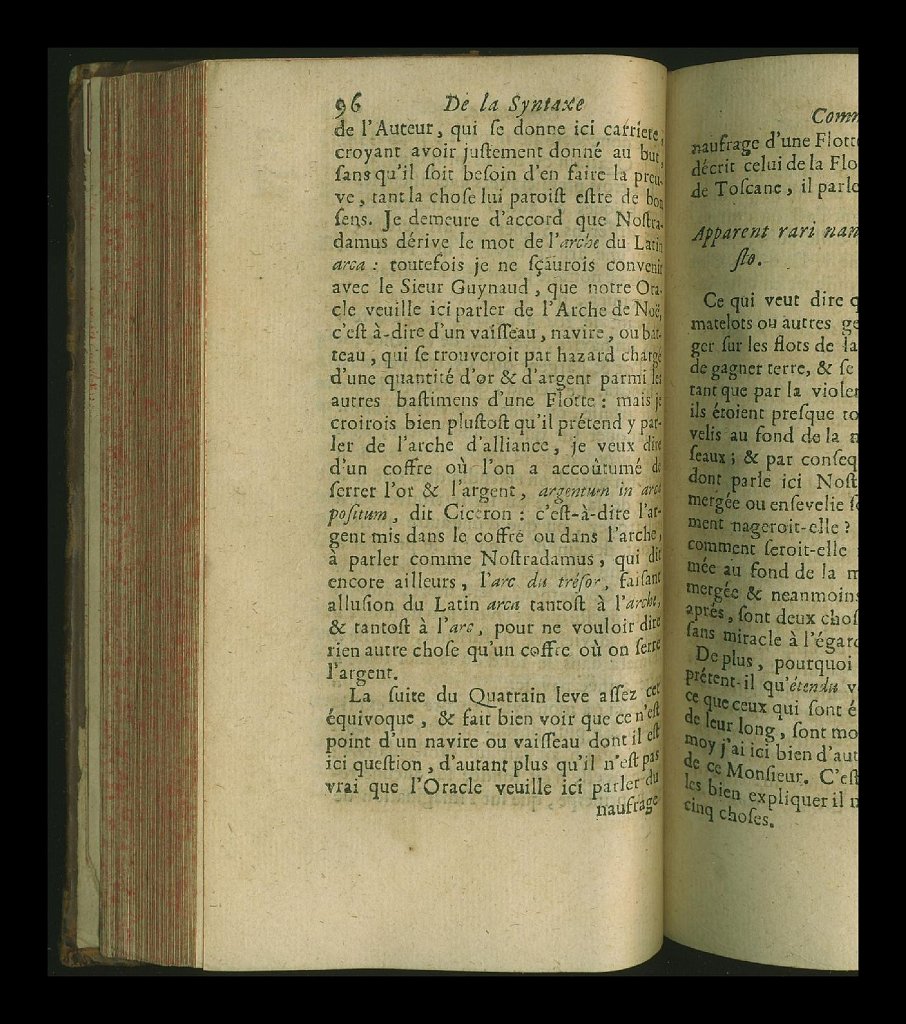 96 De la Syntaxe
de l'Auteur, qui ſe donne ici carriere,
croyant avoir juſtement donné au but,
ſans qu'il ſoit beſoin d'en faire la preu-
ve, tant la choſe lui paroiſt eſtre de bon
ſens. Je demeure d'accord que Noſtra-
damus dérive le mot de l'arche du Latin
arca : toutefois je ne ſçaurois convenir
avec le Sieur Guynaud, que notre Ora-
cle veuille ici parler de l'Arche de Noë,
c'eſt à-dire d'un vaiſſeau, navire, ou ba-
teau, qui ſe trouveroit par hazard chargé
d'une quantité d'or & d'argent parmi les
autres baſtimens d'une Flotte : mais je
croirois bien pluſtoſt qu'il prétend y par-
ler de l'arche d'alliance, je veux dire
d'un coffre où l'on a accoûtumé de
ſerrer l'or & l'argent, argentum in arca
poſitum, dit Ciceron : c'eſt-à-dire l'ar-
gent mis dans le coffre ou dans l'arche,
à parler comme Noſtradamus, qui dit
encore ailleurs, l'arc du tréſor, faiſant
alluſion du Latin arca tantoſt à l'arche,
& tantoſt à l'arc, pour ne vouloir dire
rien autre choſe qu'un coffre où on ſerre
l'argent.
La ſuite du Quatrain leve aſſez cet
équivoque, & fait bien voir que ce n'eſt
point d'un navire ou vaiſſeau dont il eſt
ici queſtion, d'autant plus qu'il n'eſt pas
vrai que l'Oracle veuille ici parler du
naufrage
Com
naufrage d'une Flotte
décrit celui de la Flo
de Toſcane, il parle
Apparent rari nan
ſto.
Ce qui veut dire q
matelots ou autres ge
ger ſur les flots de la
de gagner terre, & ſe
tant que par la violen
ils étoient preſque to
velis au fond de la m
ſeaux ; & par conſeq
dont parle ici Noſt
mergée ou enſevelie ſ
ment nageroit-elle ?
comment ſeroit-elle
mée au fond de la m
mergée & neanmoins
aprés, ſont deux choſ
ſans miracle à l'égard
De plus, pourquoi
prétent-il qu'étendu v
ce que ceux qui ſont é
de leur long, ſont mo
moy j'ai ici bien d'aut
de ce Monſieur. C'eſt
les bien expliquer il n
cinq choſes.